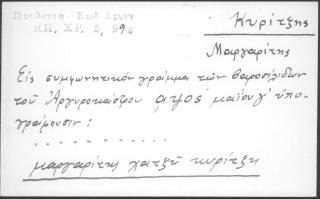 Πουλίτσα Κωδ Δρυιν
ΗΠ. ΧΡ. 5, 99
Κυρίτζης
Μαργαρίτης
Εἰς συμφωνητικόν γράμμα τῶν βαροσλίδων
τοῦ Ἀργυροκάστρου ͵αψος΄ μαΐου γ΄ ὑπο-
γράφουσιν :
. . . . . . . . . . .
μαργαρίτης χατζῆ κυρίτζη